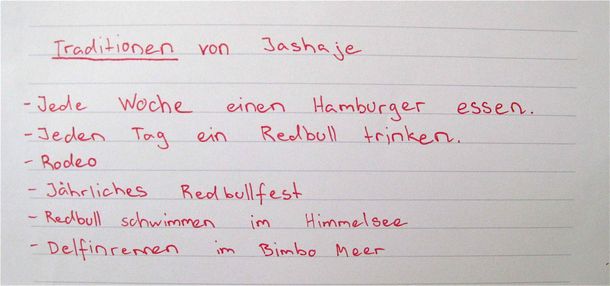 Traditionen von Jashaje
- Jede Woche einen Hamburger essen.
- Jeden Tag ein Redbull trinken.
- Rodeo
- Jährliches Redbullfest
- Redbull schwimmen im Himmelsee
- Delfinrennen im Bimbo Meer